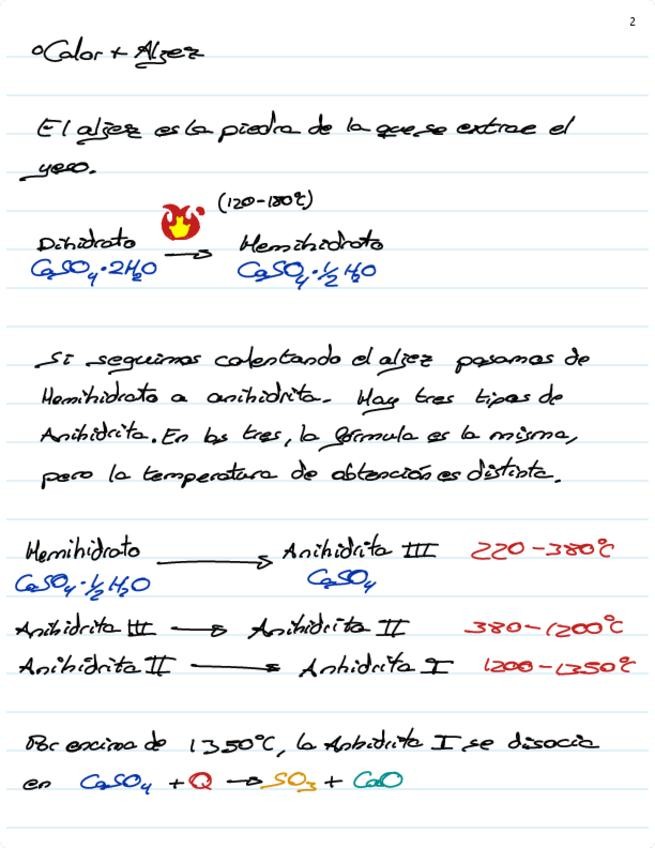 2
°Calor + Aljez
El aljez es la piedra de la que se extrae el
yeso.
(120-180°C)
Dihidrato → Hemihidrato
CaSO₄·2H₂O CaSO₄·½H₂O
Si seguimos calentando el aljez pasamos de
Hemihidrato a anihidrita. Hay tres tipos de
Anihidrita. En las tres, la fórmula es la misma,
pero la temperatura de obtención es distinta.
Hemihidrato → Anihidrita III 220-380°C
CaSO₄·½H₂O CaSO₄
Anihidrita III → Anihidrita II 380-1200°C
Anihidrita II → Anhidrita I 1200-1350°C
Por encima de 1350°C, la Anhidrita I se disocia
en CaSO₄ + Q → SO₃ + CaO